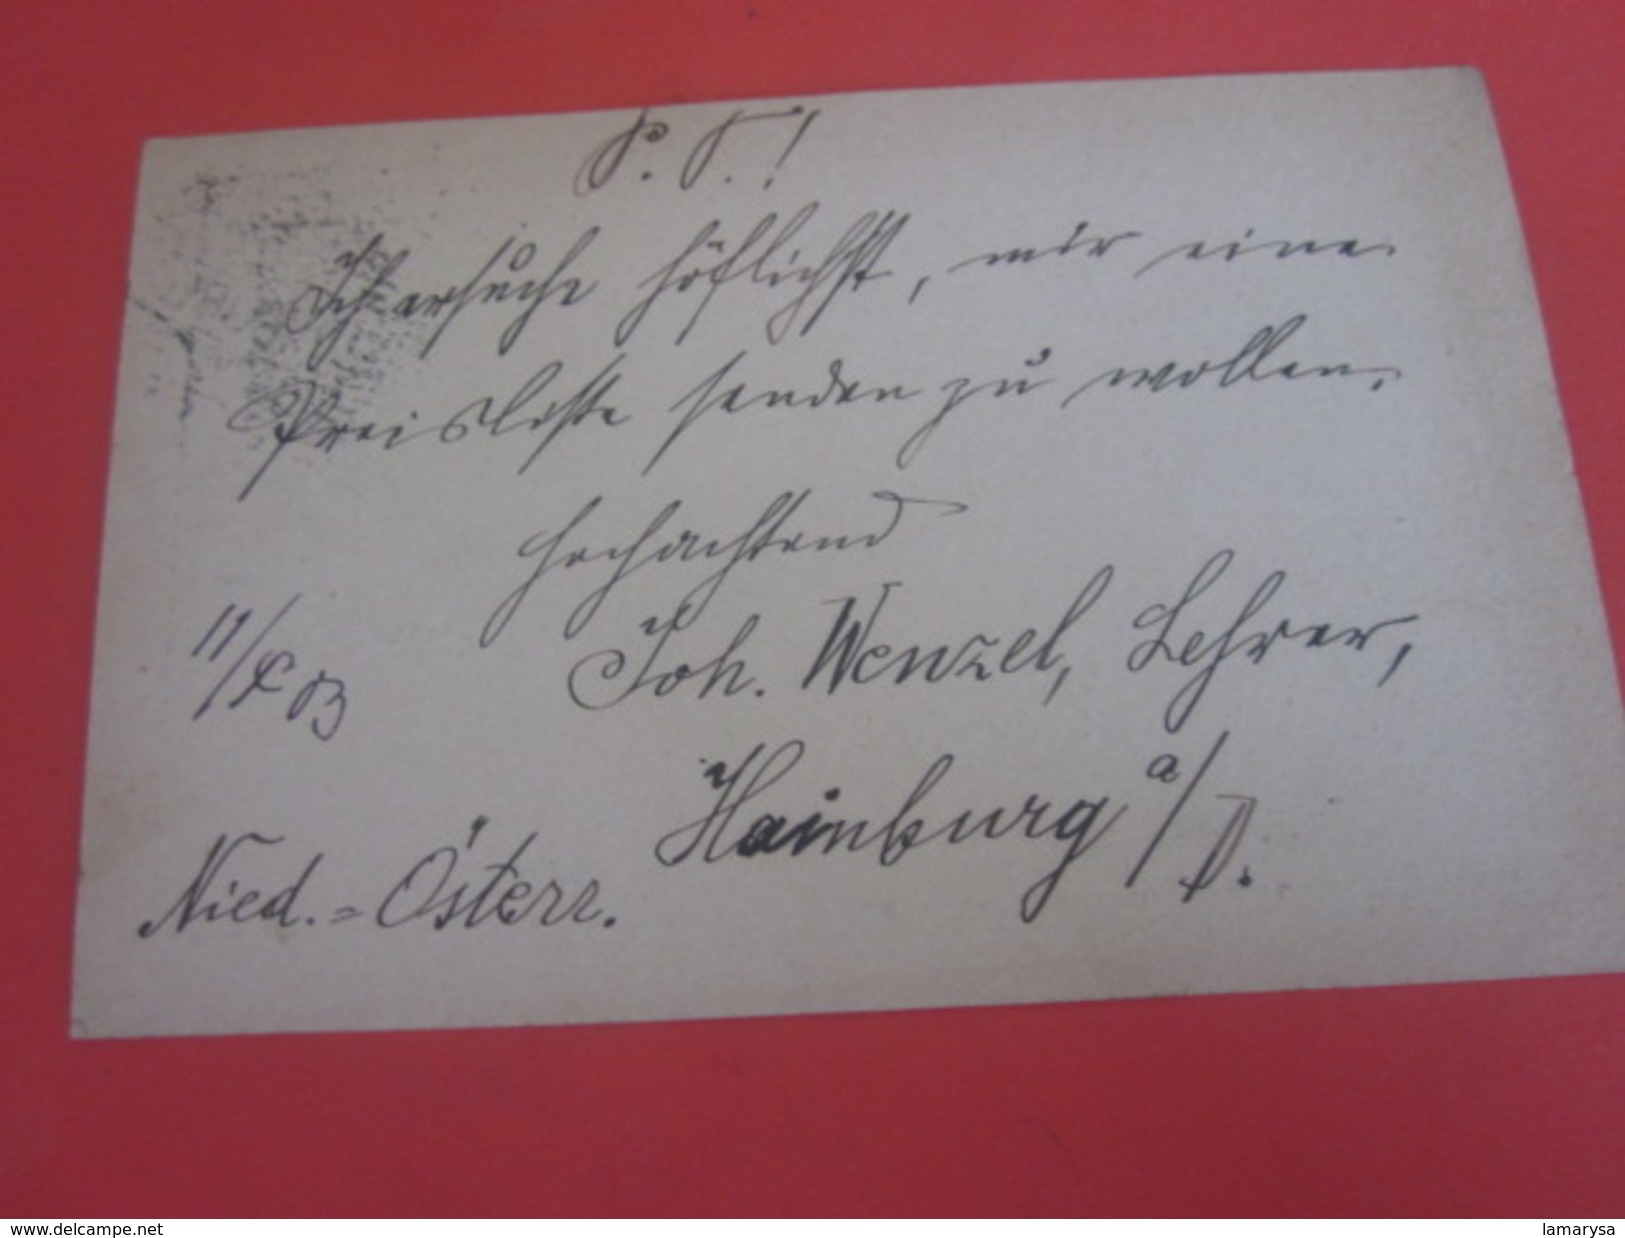 P. T. !
Ich ersuche höflichst, mir eine
Preisliste senden zu wollen.
Hochachtend
11/X 03
Joh. Wenzel, Lehrer,
Hainburg a/D.
Nied.=Österr.
www.delcampe.net
lamarysa